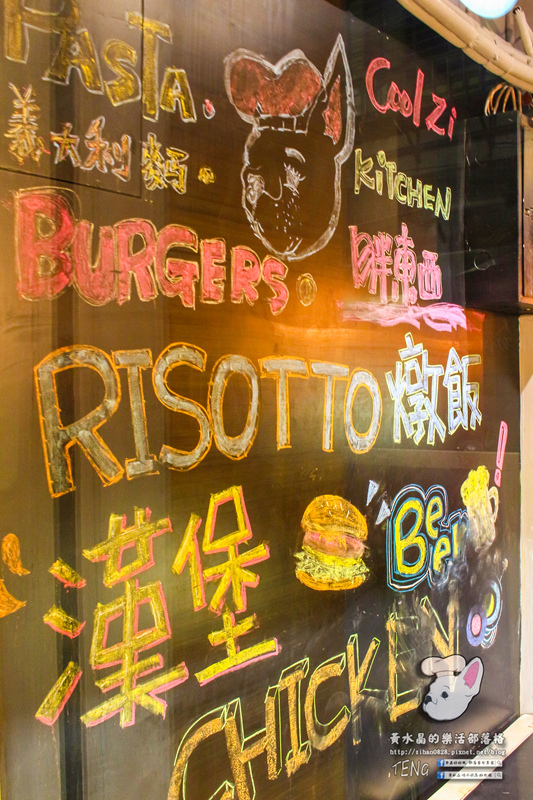 PASTA.
義大利麵.
CoolZi
KiTCHEN
胖東西
BURGERS.
RISOTTO
燉飯
漢堡
Beer!
CHICKEN
黃水晶的樂活部落格
http://sihan0828.pixnet.net/blog
.TENG